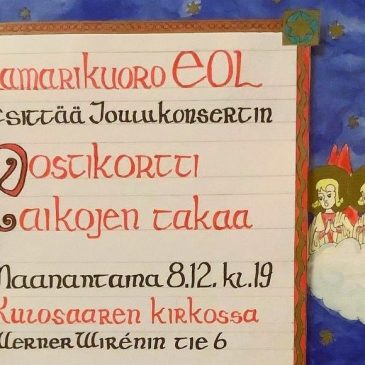 amarikuoro EOL
esittää Joulukonsertin
Postikortti
aikojen takaa
Maanantaina 8.12. kl.19
Kulosaaren kirkossa
Werner Wirénin tie 6